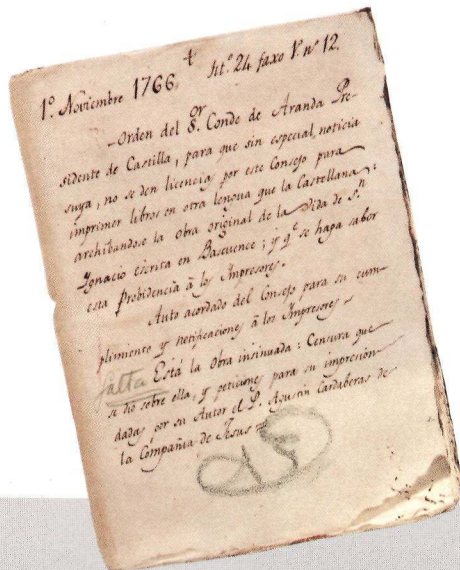 1º. Noviembre 1766, + lit.º 24 faxo 1º. nº 12.
Orden del S.or Conde de Aranda Pre-
sidente de Castilla, para que sin especial noticia
suya, no se den licencias por este Consejo para
imprimer libros en otra lengua que la Castellana:
archibandose la obra original de la Vida de S.n
Ygnacio escrita en Bascuence; y q.e se haga saber
esta Probidencia à los Ympresores.
Auto acordado del Consejo para su cum-
plimiento y notificaciones à los Ympresores =
falta Està la Obra insinuada: Censura que
se dió sobre ella, y peticiones para su impresion
dadas por su Autor el P. Agustin Cardaberas de
la Compañia de Jesus =